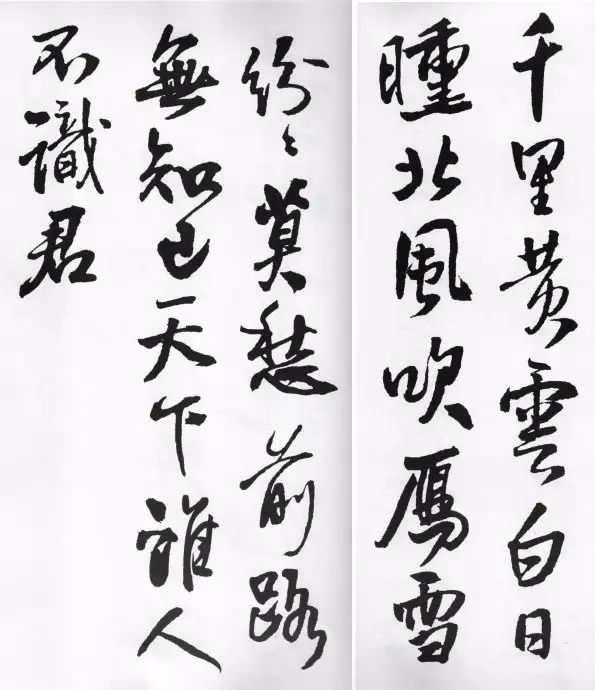 千里黄雲白日
曛北風吹鴈雪
紛〻莫愁前路
無知己天下誰人
不識君